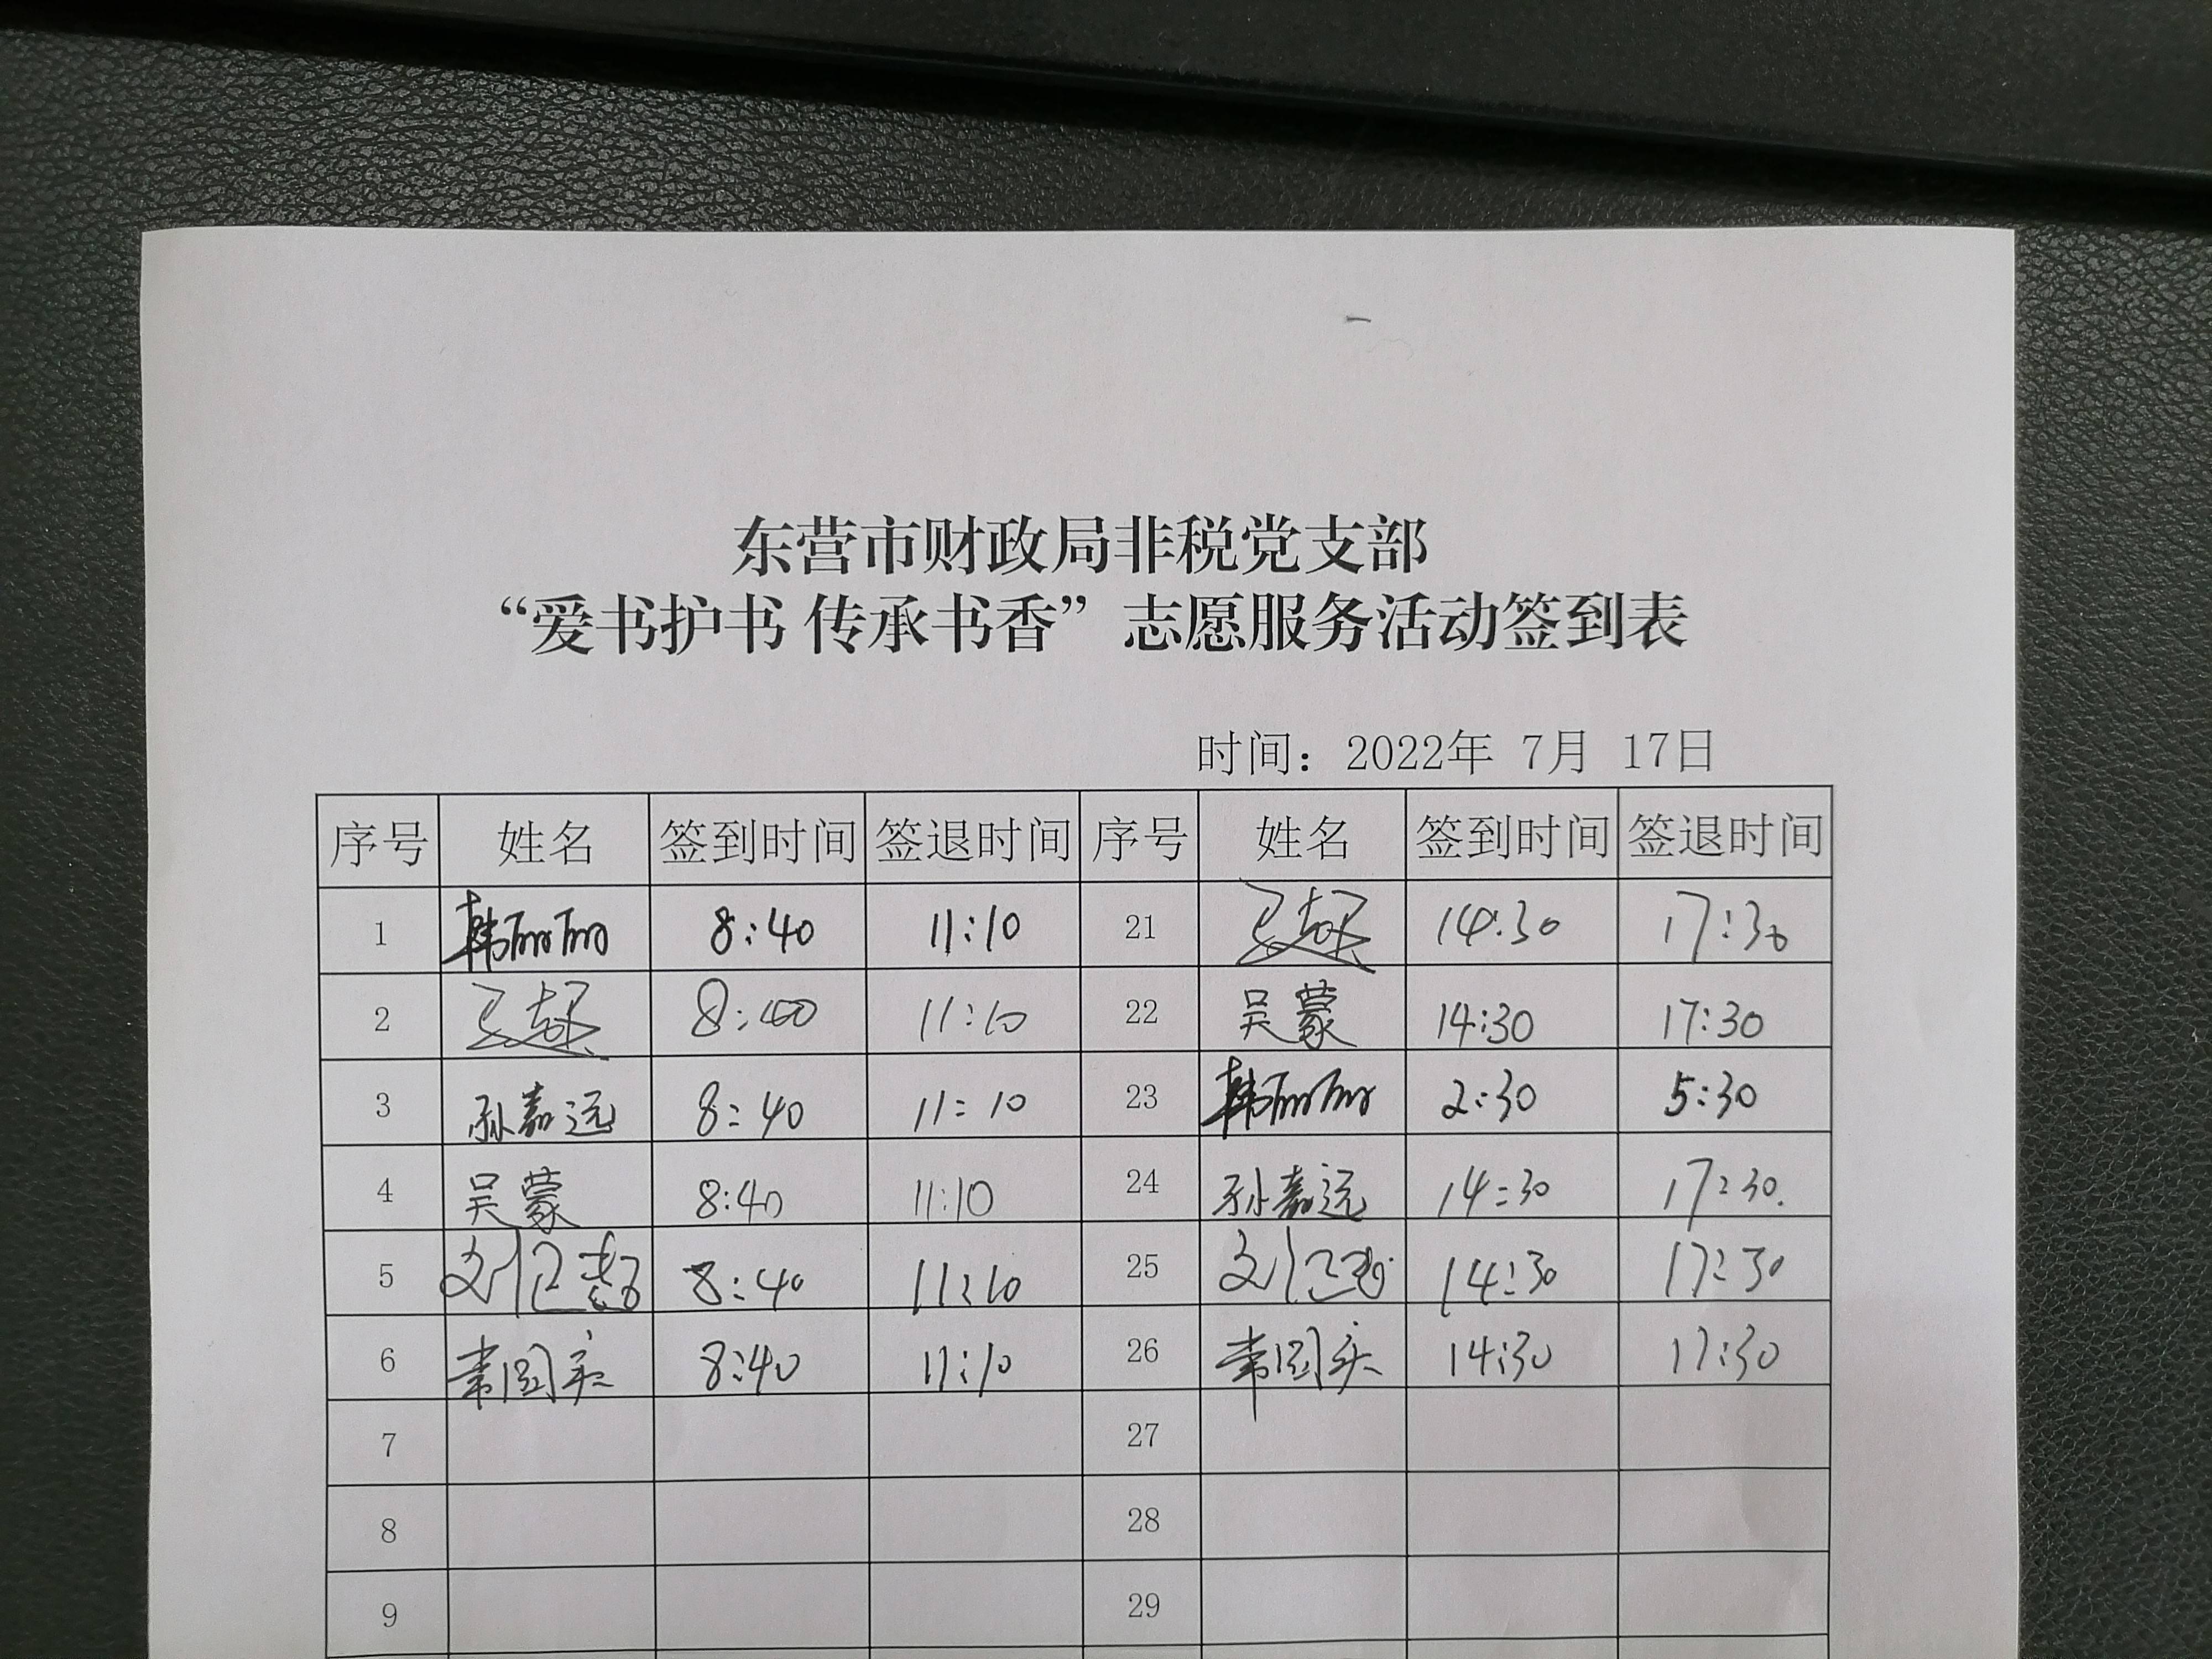 东营市财政局非税党支部
“爱书护书 传承书香”志愿服务活动签到表
时间：2022年 7月 17日
序号 姓名 签到时间 签退时间 序号 姓名 签到时间 签退时间
1 韩丽丽 8:40 11:10 21 14:30 17:30
2 11:10 22 吴蒙 14:30 17:30
3 孙嘉远 8:40 11:10 23 韩丽丽 2:30 5:30
4 吴蒙 8:40 11:10 24 孙嘉远 14:30 17:30.
5 8:40 11:10 25 14:30 17:30
6 8:40 11:10 26 14:30 17:30
7 27
8 28
9 29